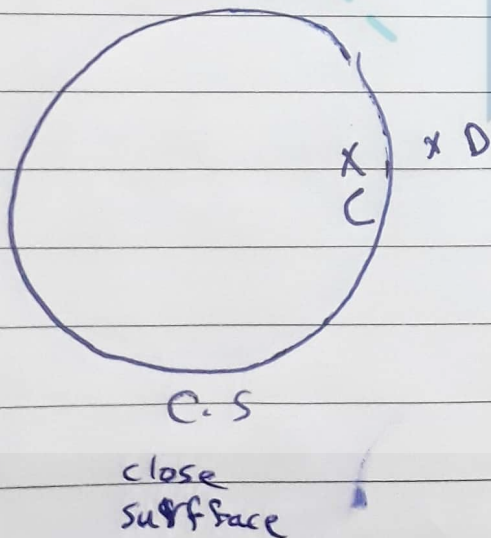 x D
x
C
C.S
close
surfface